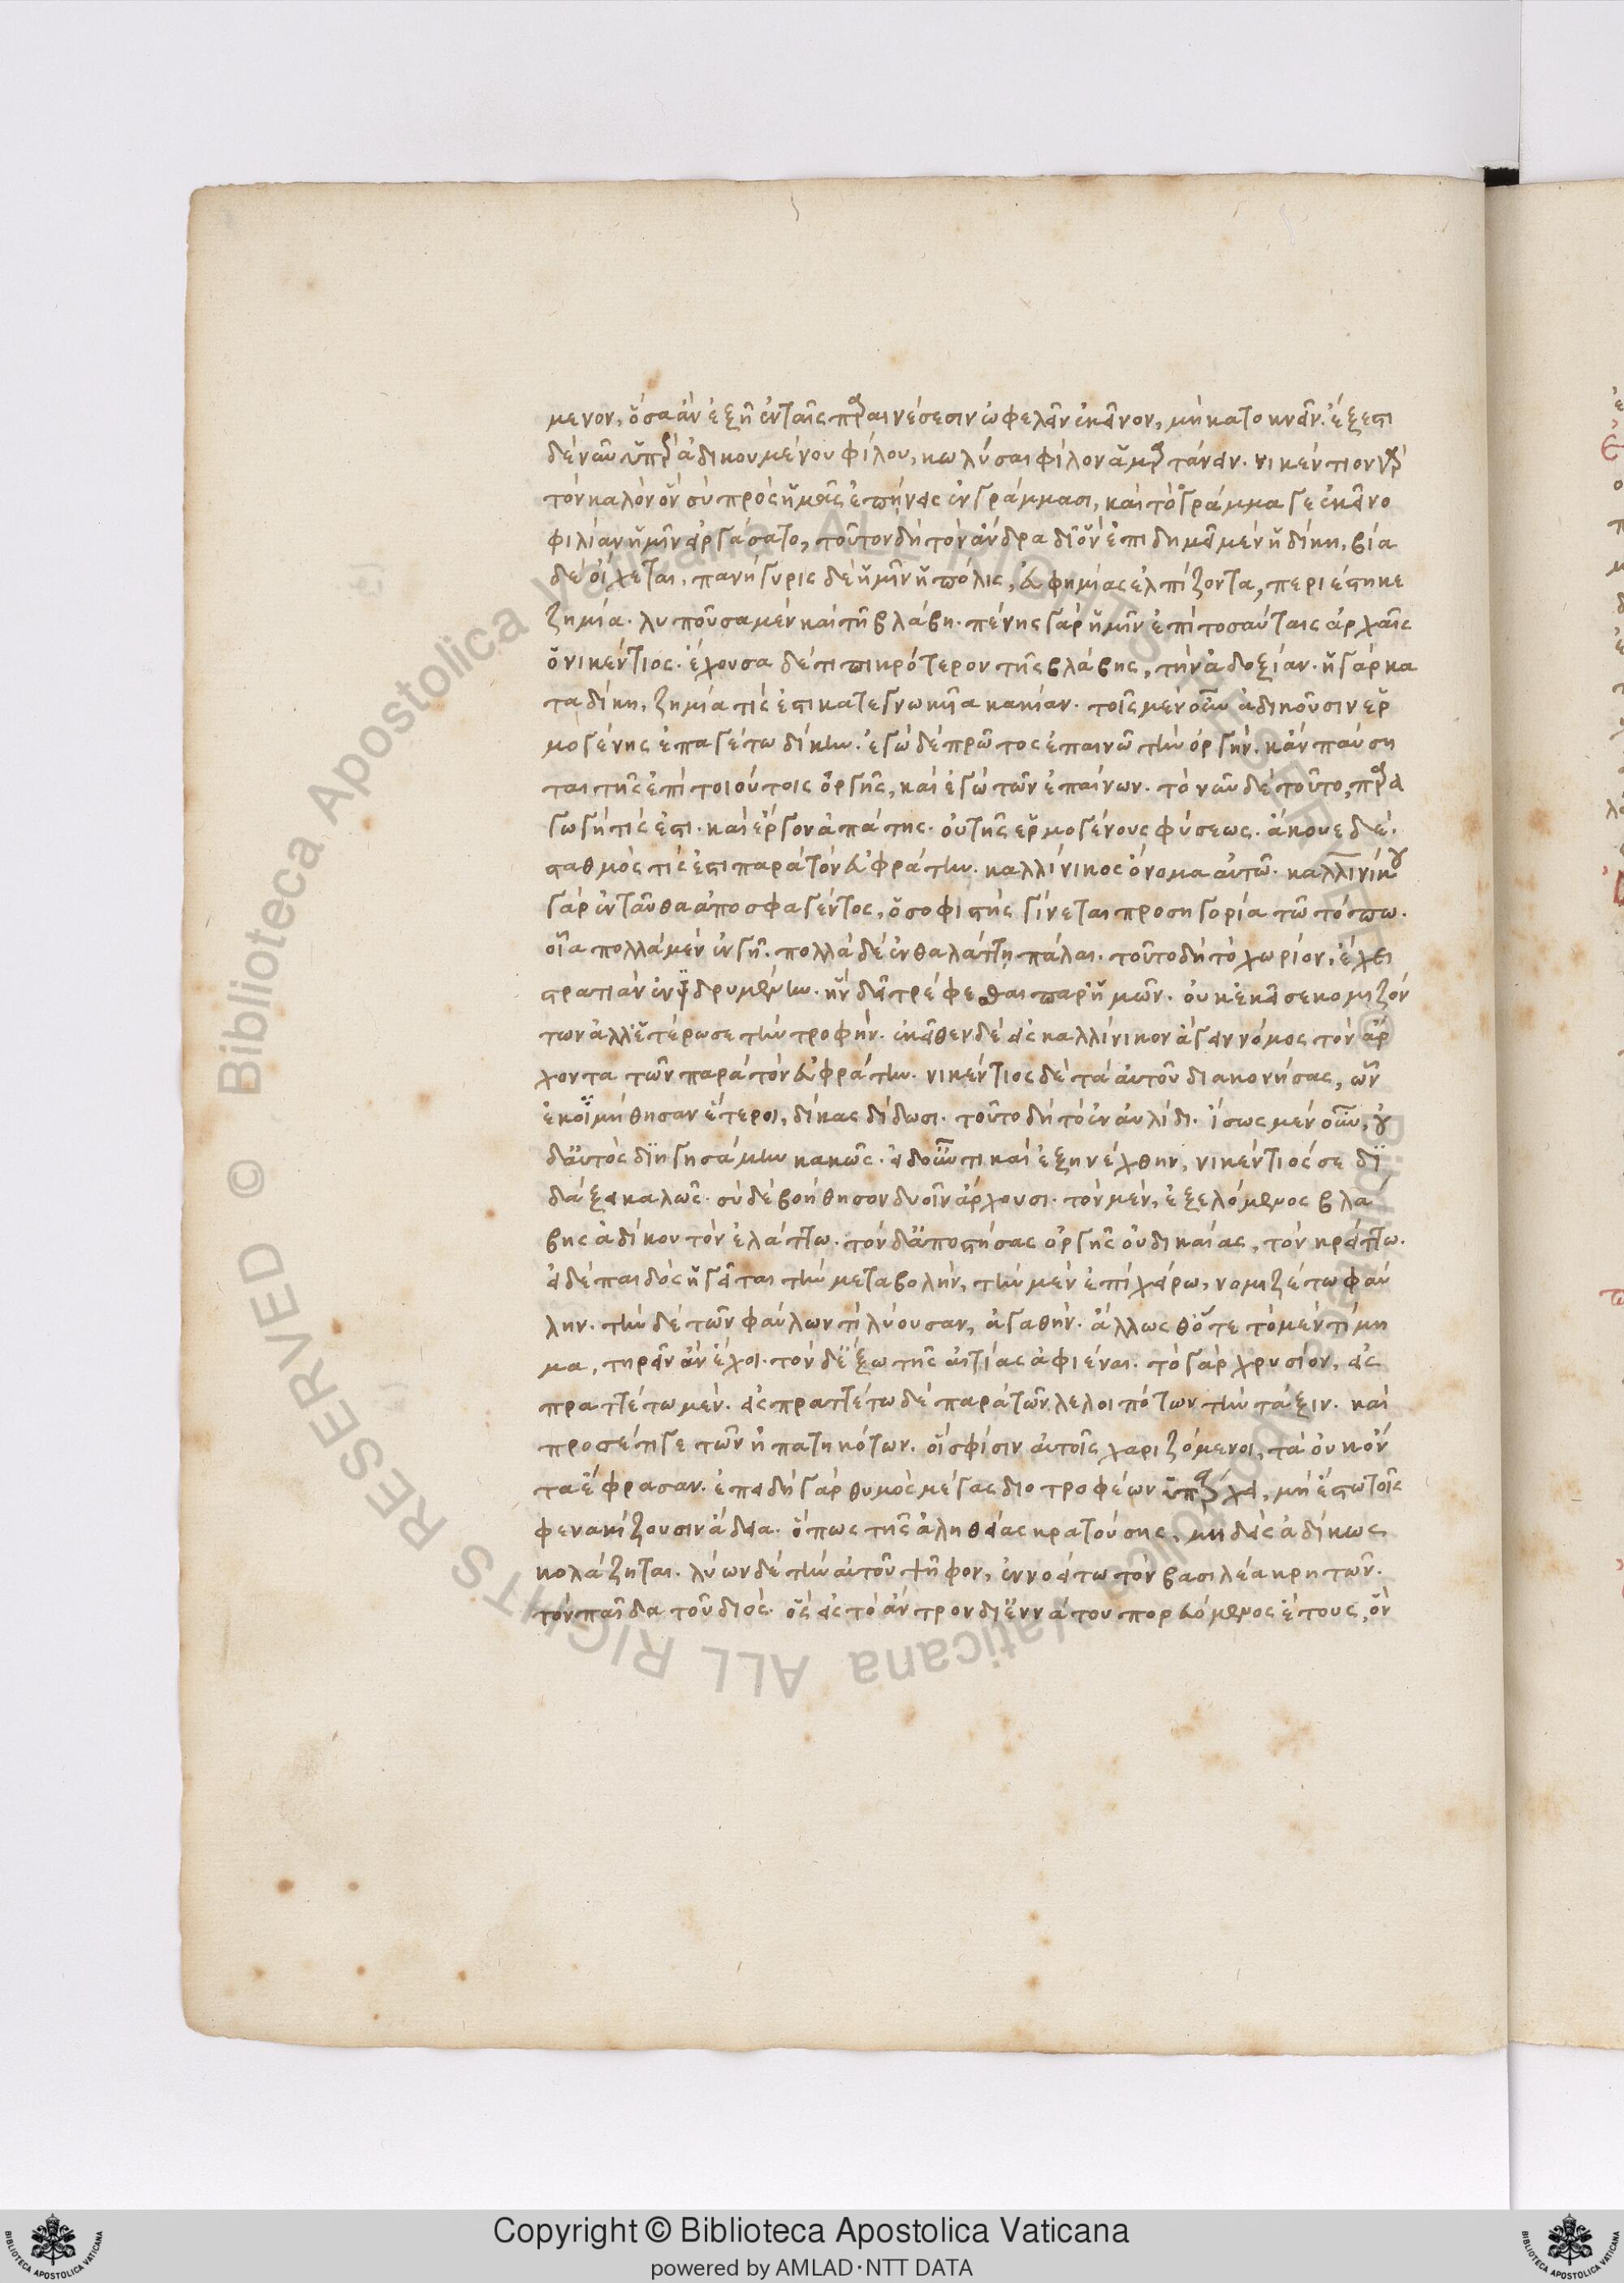 μενον, ὅσα ἂν ἐξῇ ἐν ταῖς παραινέσεσιν ὠφελεῖν ἐκεῖνον, μὴ κατοκνεῖν. ἔξεστι
δὲ νῦν ὑπὲρ ἀδικουμένου φίλου, κωλῦσαι φίλον ἁμαρτάνειν. νικέντιον γὰρ
τὸν καλὸν ὃν σὺ πρὸς ἡμᾶς ἐπῄνεις ἐν γράμμασι, καὶ τὸ γράμμα γε ἐκεῖνο
φιλίαν ἡμῖν εἰργάσατο, τοῦτον δὴ τὸν ἄνδρα δι' ὃν ἐπιδημεῖ μὲν ἡ δίκη, βία
δὲ οἴχεται, πανήγυρις δὲ ἡμῖν ἡ πόλις, εὐφημίας ἐλπίζοντα, περιέστηκε
ζημία. λυποῦσα μὲν καὶ τῇ βλάβῃ. πένης γὰρ ἡμῖν ἐπὶ τοσαύταις ἀρχαῖς
ὁ νικέντιος. ἔχουσα δέ τι πικρότερον τῆς βλάβης, τὴν ἀδοξίαν. ἡ γὰρ κα
ταδίκη, ζημία τίς ἐστι κατεγνωκυῖα κακίαν. τοῖς μὲν οὖν ἀδικοῦσιν ἑρ
μογένης ἐπαγέτω δίκην. ἐγὼ δὲ πρῶτος ἐπαινῶ τὴν ὀργήν. κἂν παύση
ται τῆς ἐπὶ τοιούτοις ὀργῆς, καὶ ἐγὼ τῶν ἐπαίνων. τὸ νῦν δὲ τοῦτο, παρα
γωγή τίς ἐστι. καὶ ἔργον ἀπάτης. οὐ τῆς ἑρμογένους φύσεως. ἄκουε δέ.
σταθμός τίς ἐστι παρὰ τὸν εὐφράτην. καλλίνικος ὄνομα αὐτῷ. καλλινίκου
γὰρ ἐνταῦθα ἀποσφαγέντος, ὁ σοφιστὴς γίνεται προσηγορία τῷ τόπῳ.
οἷα πολλὰ μὲν ἐν γῇ. πολλὰ δὲ ἐν θαλάττῃ πάλαι. τοῦτο δὴ τὸ χωρίον, ἔχει
στρατιὰν ἐνιδρυμένην. ἣν δεῖ τρέφεσθαι παρ' ἡμῶν. οὐκ ἐκεῖσε κομιζόν
των ἀλλ' ἑτέρωσε τὴν τροφήν. ἐκεῖθεν δὲ εἰς καλλίνικον ἄγειν νόμος τὸν ἄρ
χοντα τῶν παρὰ τὸν εὐφράτην. νικέντιος δὲ τὰ αὑτοῦ διακονήσας, ὧν
ἐκοιμήθησαν ἕτεροι, δίκας δίδωσι. τοῦτο δὴ τὸ ἐν αὐλίδι. ἴσως μὲν οὖν, οὐ
δ' αὐτὸς διηγησάμην κακῶς. εἰ δ' οὖν τι καὶ ἐξηνέχθην, νικέντιός σε δι
δάξει καλῶς. σὺ δὲ βοήθησον δυοῖν ἄρχουσι. τὸν μὲν, ἐξελόμενος βλά
βης ἀδίκου τὸν ἐλάττω. τὸν δ' ἀποστήσας ὀργῆς οὐ δικαίας, τὸν κρείττω.
εἰ δὲ παιδὸς ἡγεῖται τὴν μεταβολήν, τὴν μὲν ἐπὶ χείρω, νομιζέτω φαύ
λην. τὴν δὲ τῶν φαύλων τι λύουσαν, ἀγαθήν. ἄλλως θ' ὅτε τὸ μὲν τίμη
μα, τηρεῖν ἂν ἔχοι. τὸν δ' ἔξω τῆς αἰτίας ἀφιέναι. τὸ γὰρ χρυσίον, εἰσ
πραττέτω μέν. εἰσπραττέτω δὲ παρὰ τῶν λελοιπότων τὴν τάξιν. καὶ
προσέτι γε τῶν ἠπατηκότων. οἳ σφίσιν αὐτοῖς χαριζόμενοι, τὰ οὐκ ὄν
τα ἔφρασαν. ἐπειδὴ γὰρ θυμὸς μέγας διοτροφέων ὑπάρχει, μὴ ἔστω τοῖς
φενακίζουσιν ἄδεια. ὅπως τῆς ἀληθείας κρατούσης, μηδεὶς ἀδίκως
κολάζηται. λύων δὲ τὴν αὑτοῦ ψῆφον, ἐννοείτω τὸν βασιλέα κρητῶν.
τὸν παῖδα τοῦ διός. ὃς εἰς τὸ ἄντρον δι' ἐννάτου πορευόμενος ἔτους, ὃν
Copyright © Biblioteca Apostolica Vaticana
powered by AMLAD·NTT DATA